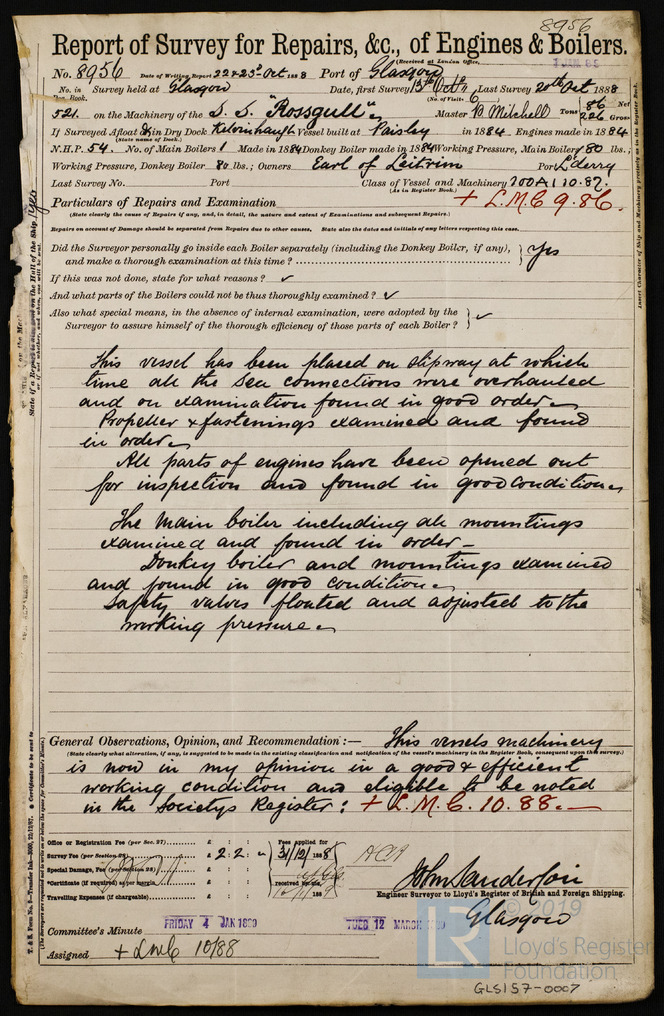 8956
Report of Survey for Repairs, &c., of Engines & Boilers.
(Received at London Office,
No. 8956 Date of Writing Report 22 & 23rd Oct 1888 Port of Glasgow
No. in Survey held at Glasgow Date, first Survey 15th Octr Last Survey 20th Oct 1888
Reg. Book. (No. of Visits 6
521. on the Machinery of the S. S. "Rossgull" Master B. Mitchell Tons 86 Net
226 Gross
If Surveyed Afloat & in Dry Dock Kelvinhaugh Vessel built at Paisley in 1884 Engines made in 1884
(State name of Dock.)
N.H.P. 54. No. of Main Boilers 1 Made in 1884 Donkey Boiler made in 1884 Working Pressure, Main Boilers 80 lbs.;
Working Pressure, Donkey Boiler 80 lbs.; Owners Earl of Leitrim Port L'derry
Last Survey No. Port Class of Vessel and Machinery 100A1 10.87.
(As in Register Book.)
Particulars of Repairs and Examination + L.M.C 9.86.
(State clearly the cause of Repairs if any, and, in detail, the nature and extent of Examinations and subsequent Repairs.)
Repairs on account of Damage should be separated from Repairs due to other causes. State also the dates and initials of any letters respecting this case.
Did the Surveyor personally go inside each Boiler separately (including the Donkey Boiler, if any), and make a thorough examination at this time? } Yes
If this was not done, state for what reasons? ✓
And what parts of the Boilers could not be thus thoroughly examined? ✓
Also what special means, in the absence of internal examination, were adopted by the
Surveyor to assure himself of the thorough efficiency of those parts of each Boiler? } ✓
This vessel has been placed on slipway at which
time all the sea connections were overhauled
and on examination found in good order
Propeller & fastenings examined and found
in order
All parts of engines have been opened out
for inspection and found in good condition
The Main boiler including all mountings
examined and found in order
Donkey boiler and mountings examined
and found in good condition
Safety valves floated and adjusted to the
working pressure
General Observations, Opinion, and Recommendation:— This vessels machinery
(State clearly what alteration, if any, is suggested to be made in the existing classification and notification of the vessel's machinery in the Register Book, consequent upon this survey.)
is now in my opinion in a good & efficient
working condition and eligible to be noted
in the Societys Register: + L.M.C. 10.88.
Office or Registration Fee (per Sec. 27) £ : :
Survey Fee (per Section 28) £ 2 : 2 : –
Special Damage Fee (per Section 28) £ : :
*Certificate (if required) as per margin £ : :
Travelling Expenses (if chargeable) £ : :
Fees applied for
31/12/1888
received by me,
John Sanderson
Engineer Surveyor to Lloyd's Register of British and Foreign Shipping.
Glasgow
Committee's Minute FRIDAY 4 JAN 1889 TUES 12 MARCH 1889
Assigned + LMC 10/88
© 2019
LR
Lloyd's Register
Foundation
GLS157-0007